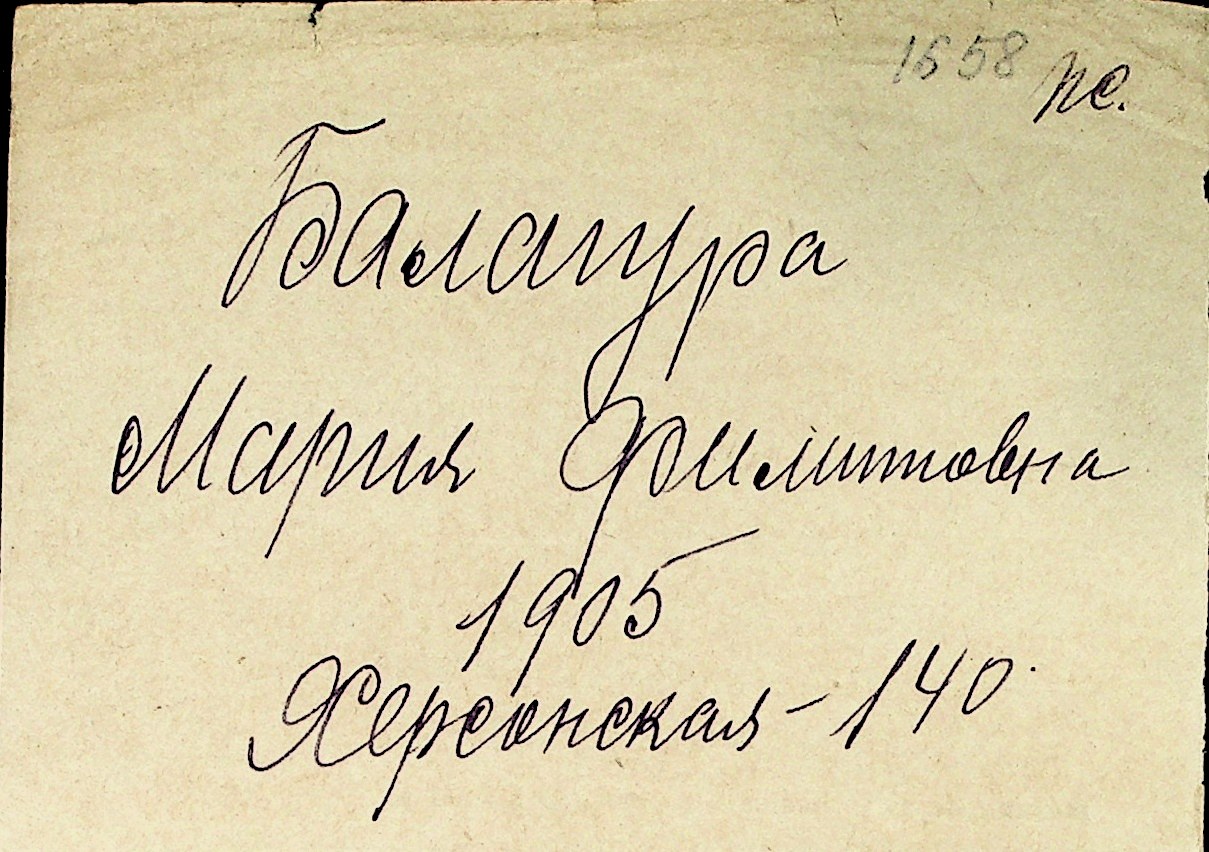 1658
Балагура
Мария Филиповна
1905
Херсонская - 140.